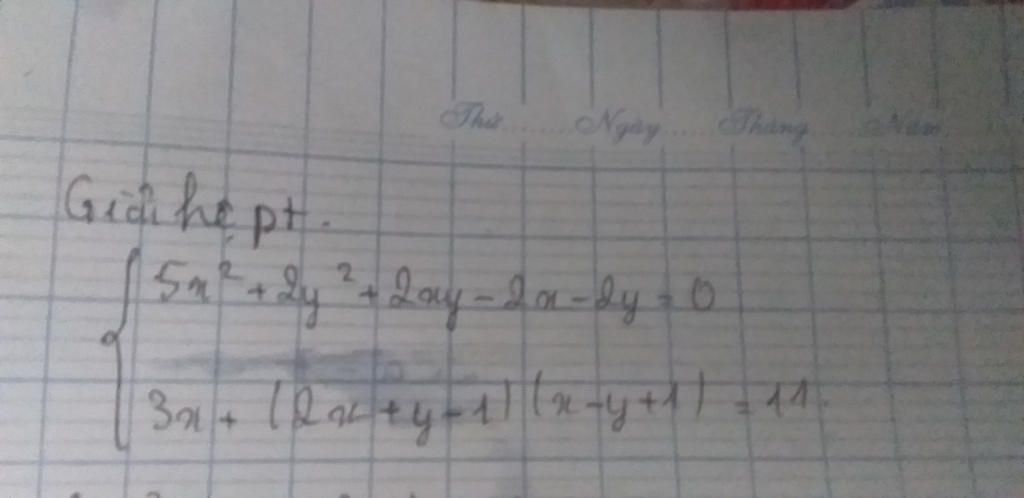 Thứ......Ngày......Tháng......Năm
Giải hệ pt.
5x² + 2y² + 2xy - 2x - 2y = 0
3x + (2x + y - 1)(x - y + 1) = 11.